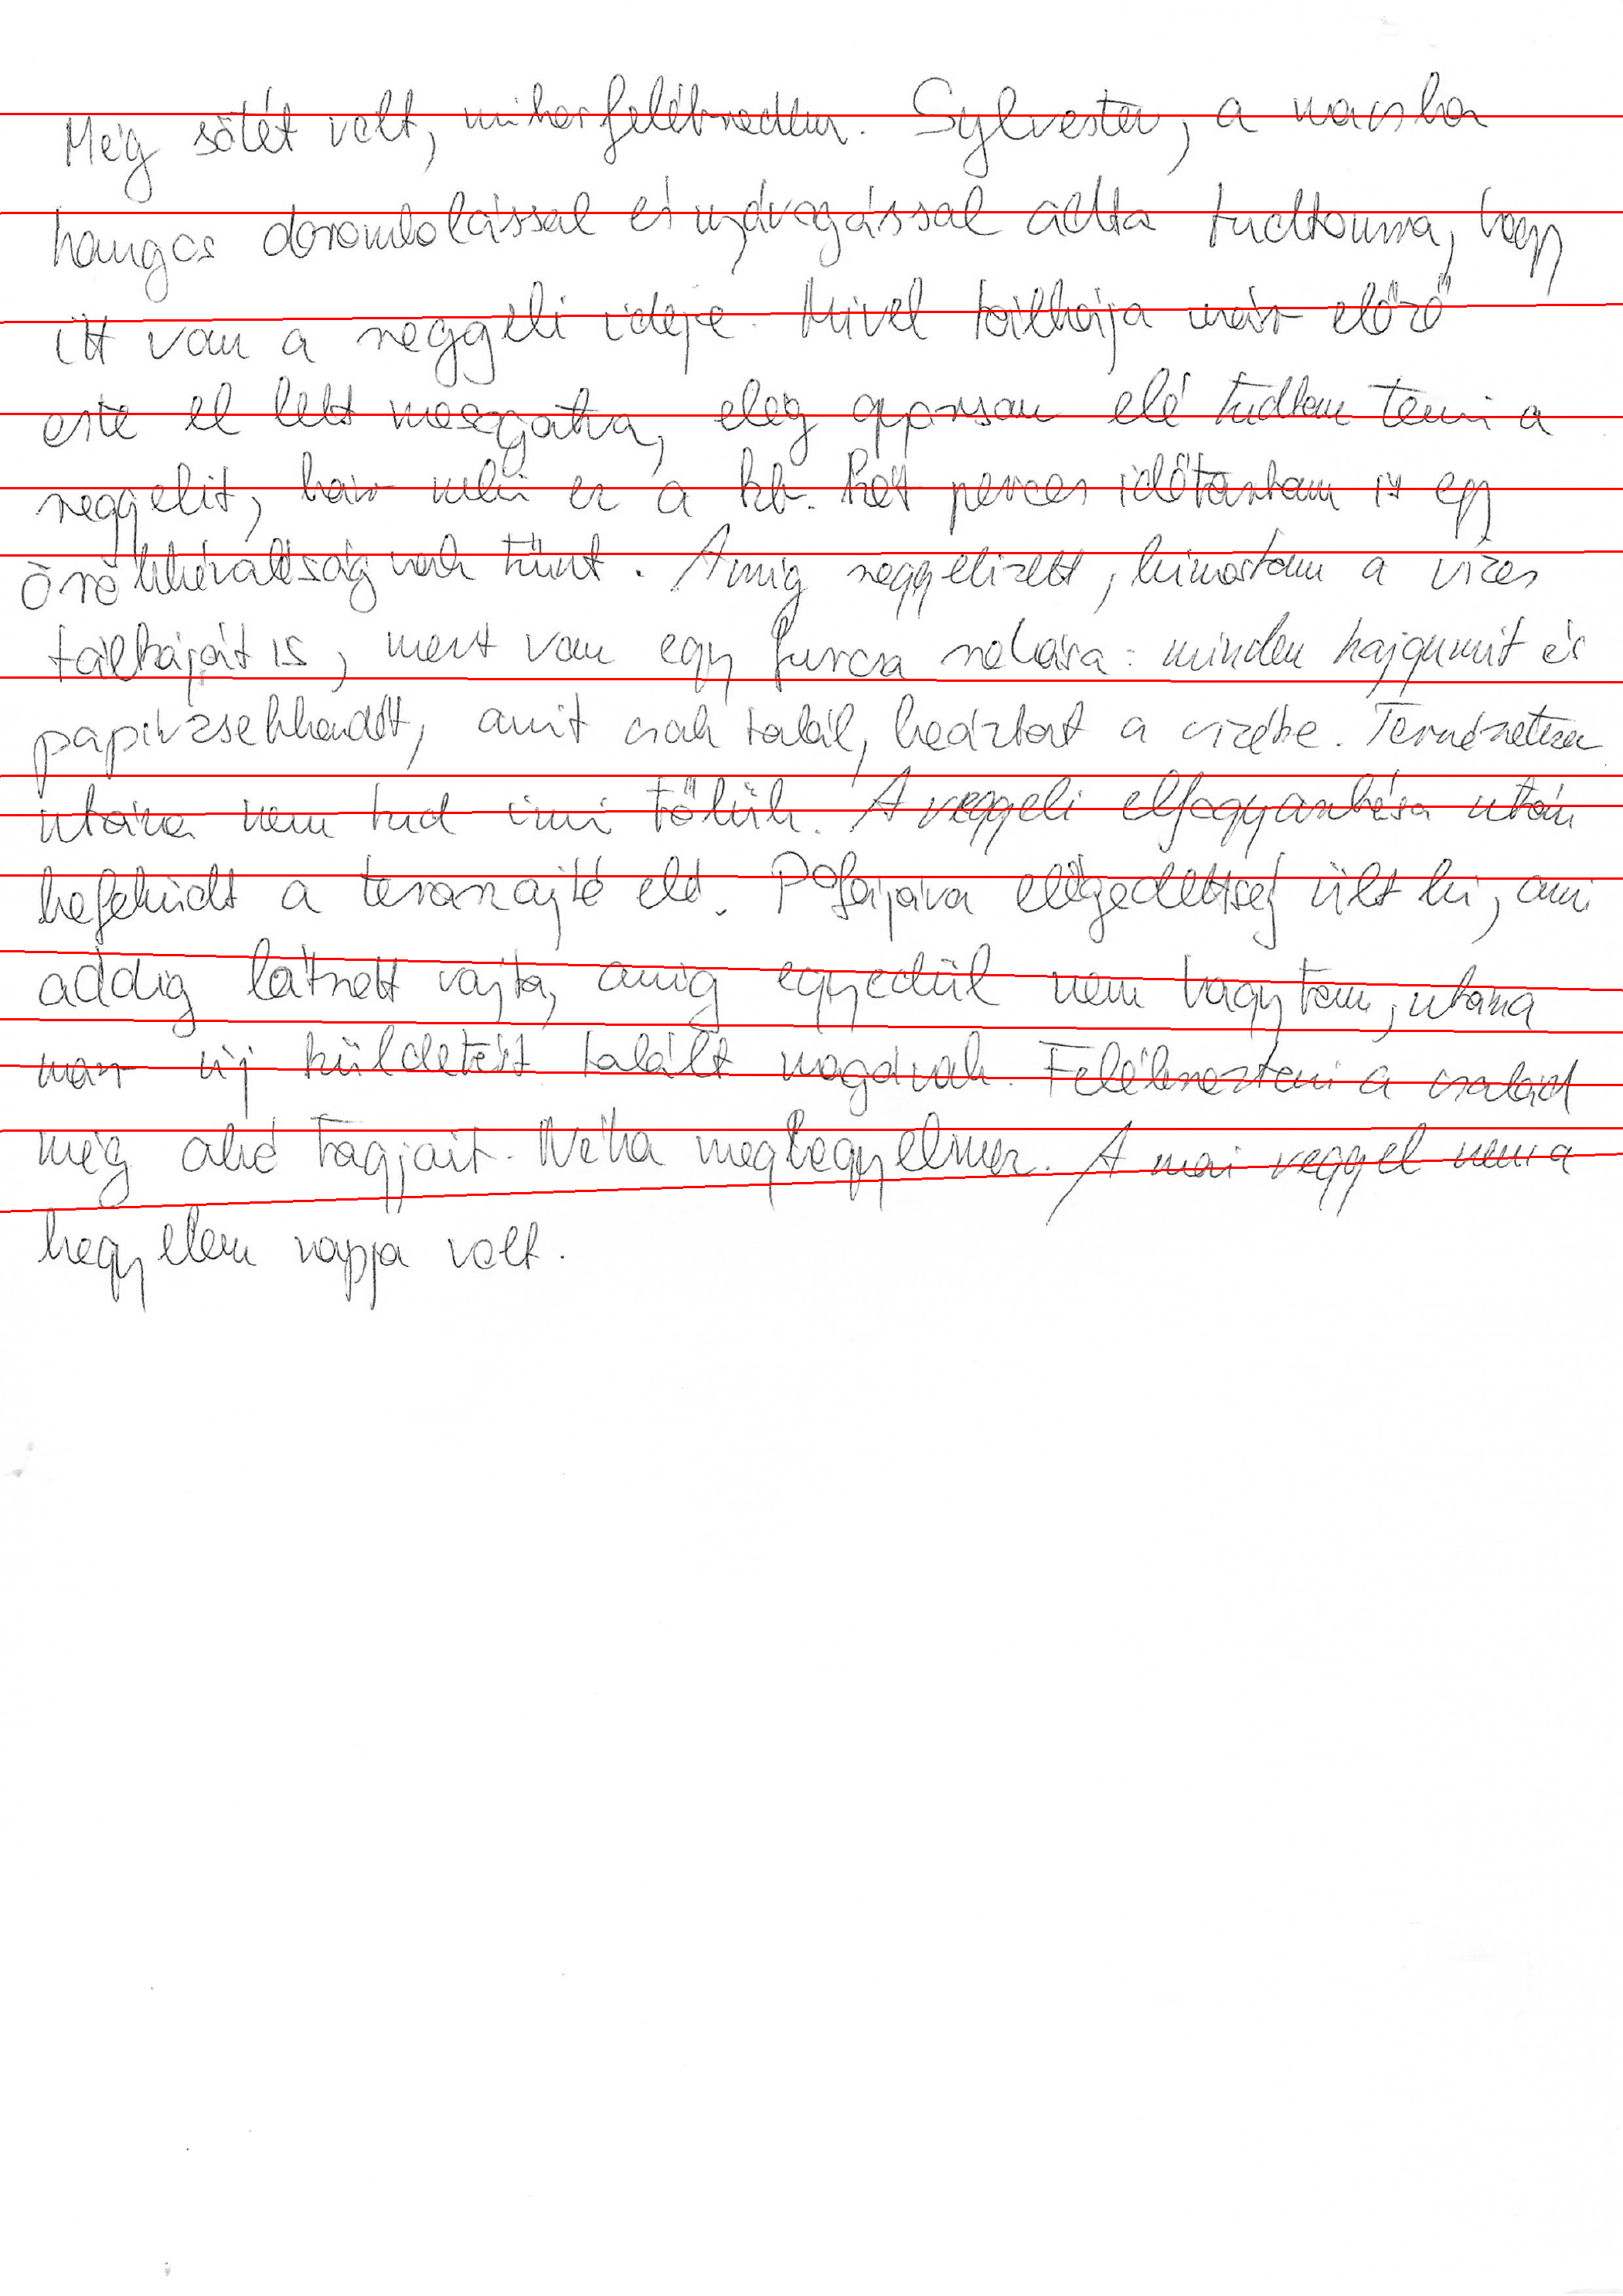 Még sötét volt, mikor felébredtem. Sylvester, a macska
hangos dorombolással és nyávogással adta tudtomra, hogy
itt van a reggeli ideje. Mivel tálkája már előző
este el lett mosogatva, elég gyorsan elé tudtam tenni a
reggelit, bár neki ez a kb. két perces időtartam is egy
örökkévalóságnak tűnt. Amíg reggelizett, kimostam a vizes
tálkáját is, mert van egy furcsa szokása: minden hajgumit és
papírzsebkendőt, amit csak talál, beáztat a vizébe. Természetesen
utána nem tud inni tőlük. A reggeli elfogyasztása után
lefeküdt a teraszajtó elé. Pofájára elégedettség ült ki, ami
addig látszott rajta, amíg egyedül nem hagytam, utána
már új küldetést talált magának. Felébreszteni a család
még alvó tagjait. Néha megkegyelmez. A mai reggel nem a
kegyelem napja volt.